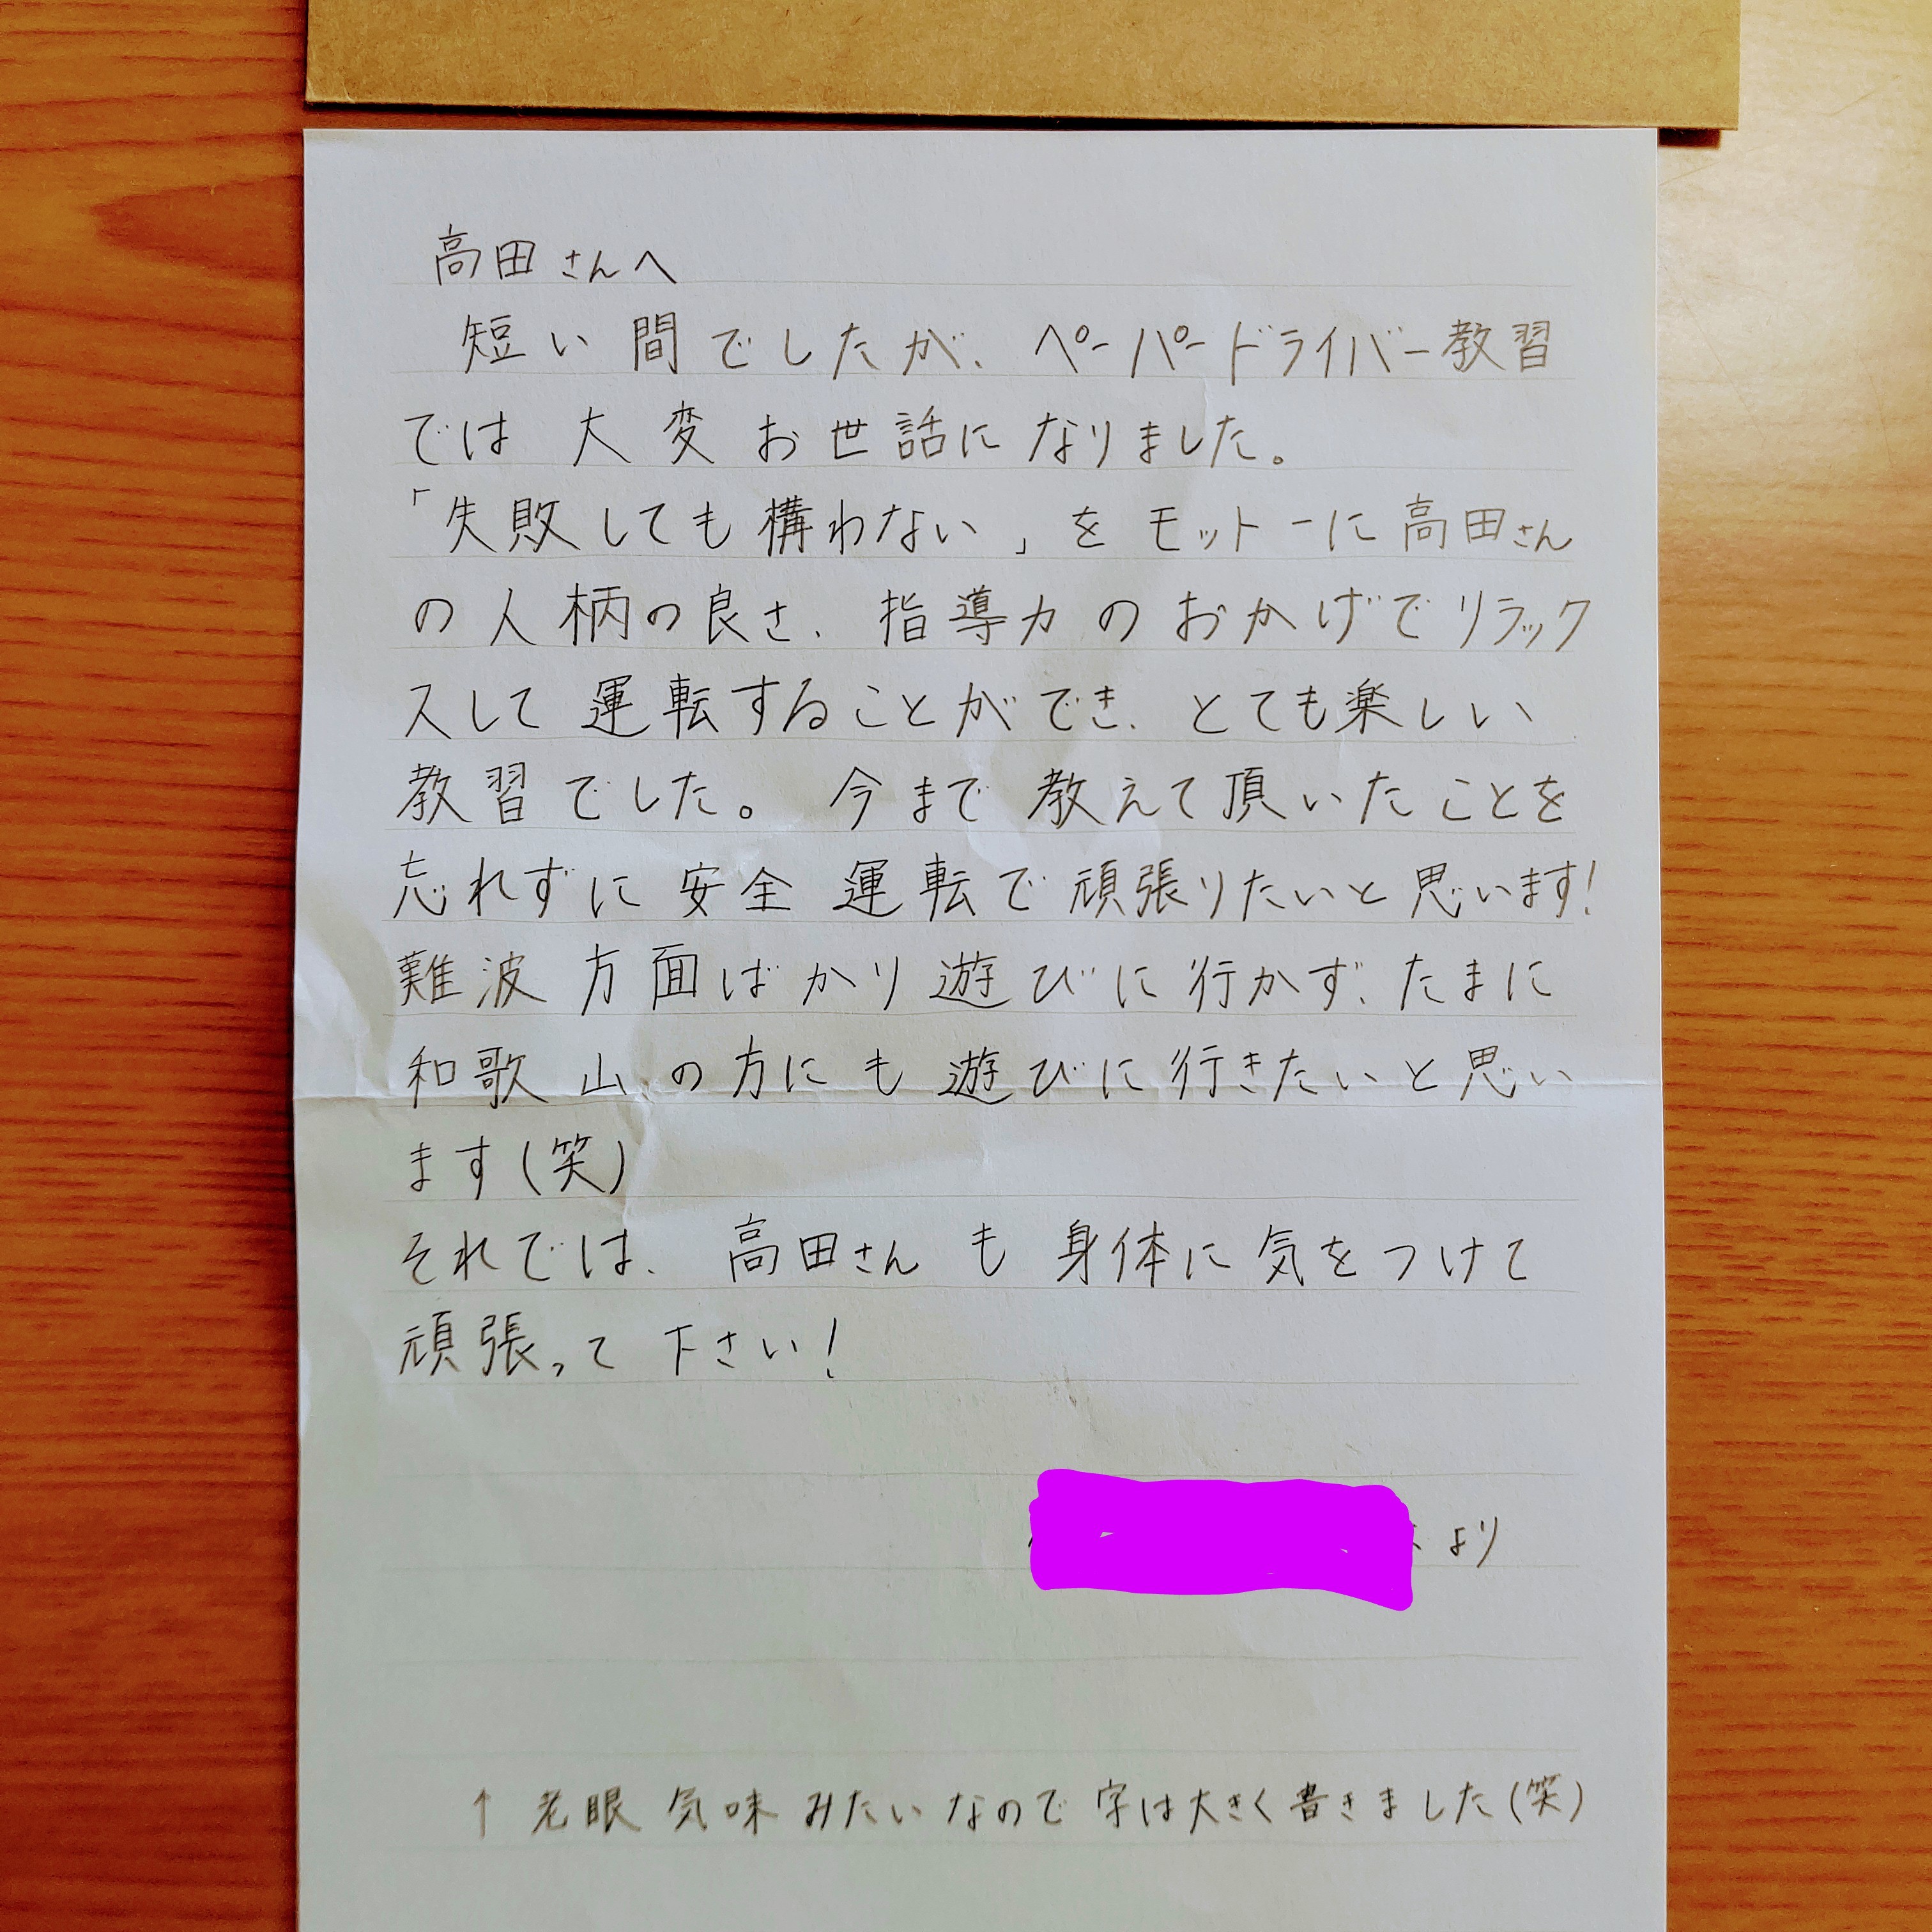 高田さんへ
短い間でしたが、ペーパードライバー教習
では大変お世話になりました。
「失敗しても構わない」をモットーに高田さん
の人柄の良さ、指導力のおかげでリラック
スして運転することができ、とても楽しい
教習でした。今まで教えて頂いたことを
忘れずに安全運転で頑張りたいと思います!
難波方面ばかり遊びに行かず、たまに
和歌山の方にも遊びに行きたいと思い
ます(笑)
それでは、高田さんも身体に気をつけて
頑張って下さい!
より
↑老眼気味みたいなので字は大きく書きました(笑)